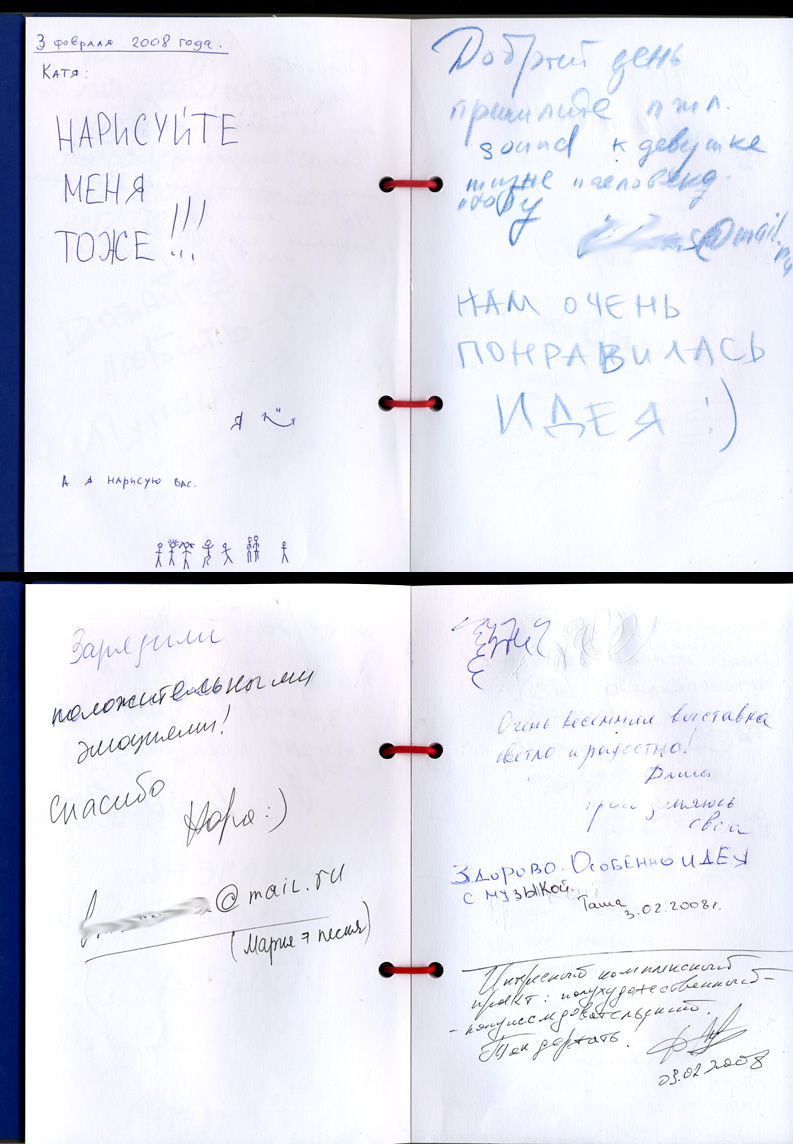 3 февраля 2008 года.
Катя:
НАРИСУЙТЕ
МЕНЯ
ТОЖЕ!!!
Я
А Я НАРИСУЮ ВАС.
Добрый день
пришлите пжл.
sound к девушке
@mail.ru
НАМ ОЧЕНЬ
ПОНРАВИЛАСЬ
ИДЕЯ :)
Зарядили
положительными
эмоциями!
Спасибо
Нора :)
@mail.ru
(Мария 7 песня)
Очень весенняя выставка
светло и радостно!
ЗДОРОВО. ОСОБЕННО ИДЕЯ
С МУЗЫКОЙ.
Таша
3.02.2008г.
Интересный комплексный
проект: полухудожественный-
-полуисследовательский.
Так держать.
03.02.2008